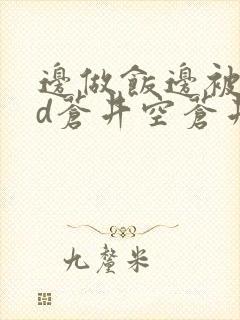 邊做飯邊被
d蒼井空蒼井
九釐米